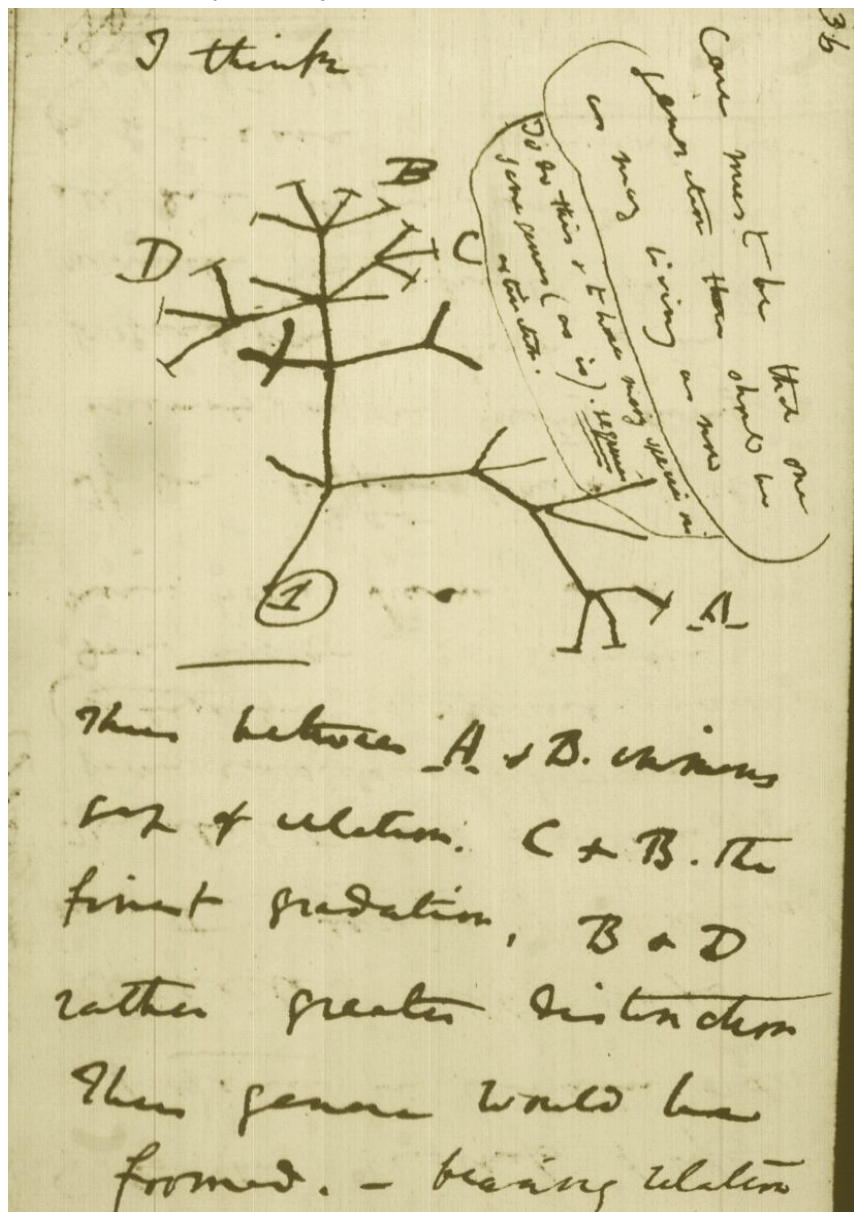 36
I think
B
D
C
1
A
Case must be that one
generation then should be
as many living as now
To do this & to have many species in
same genus (as is). requires
extinction.
Thus between A & B. immens
gap of relation. C & B. the
finest gradation, B & D
rather greater distinction
Thus genera would be
formed. — bearing relation